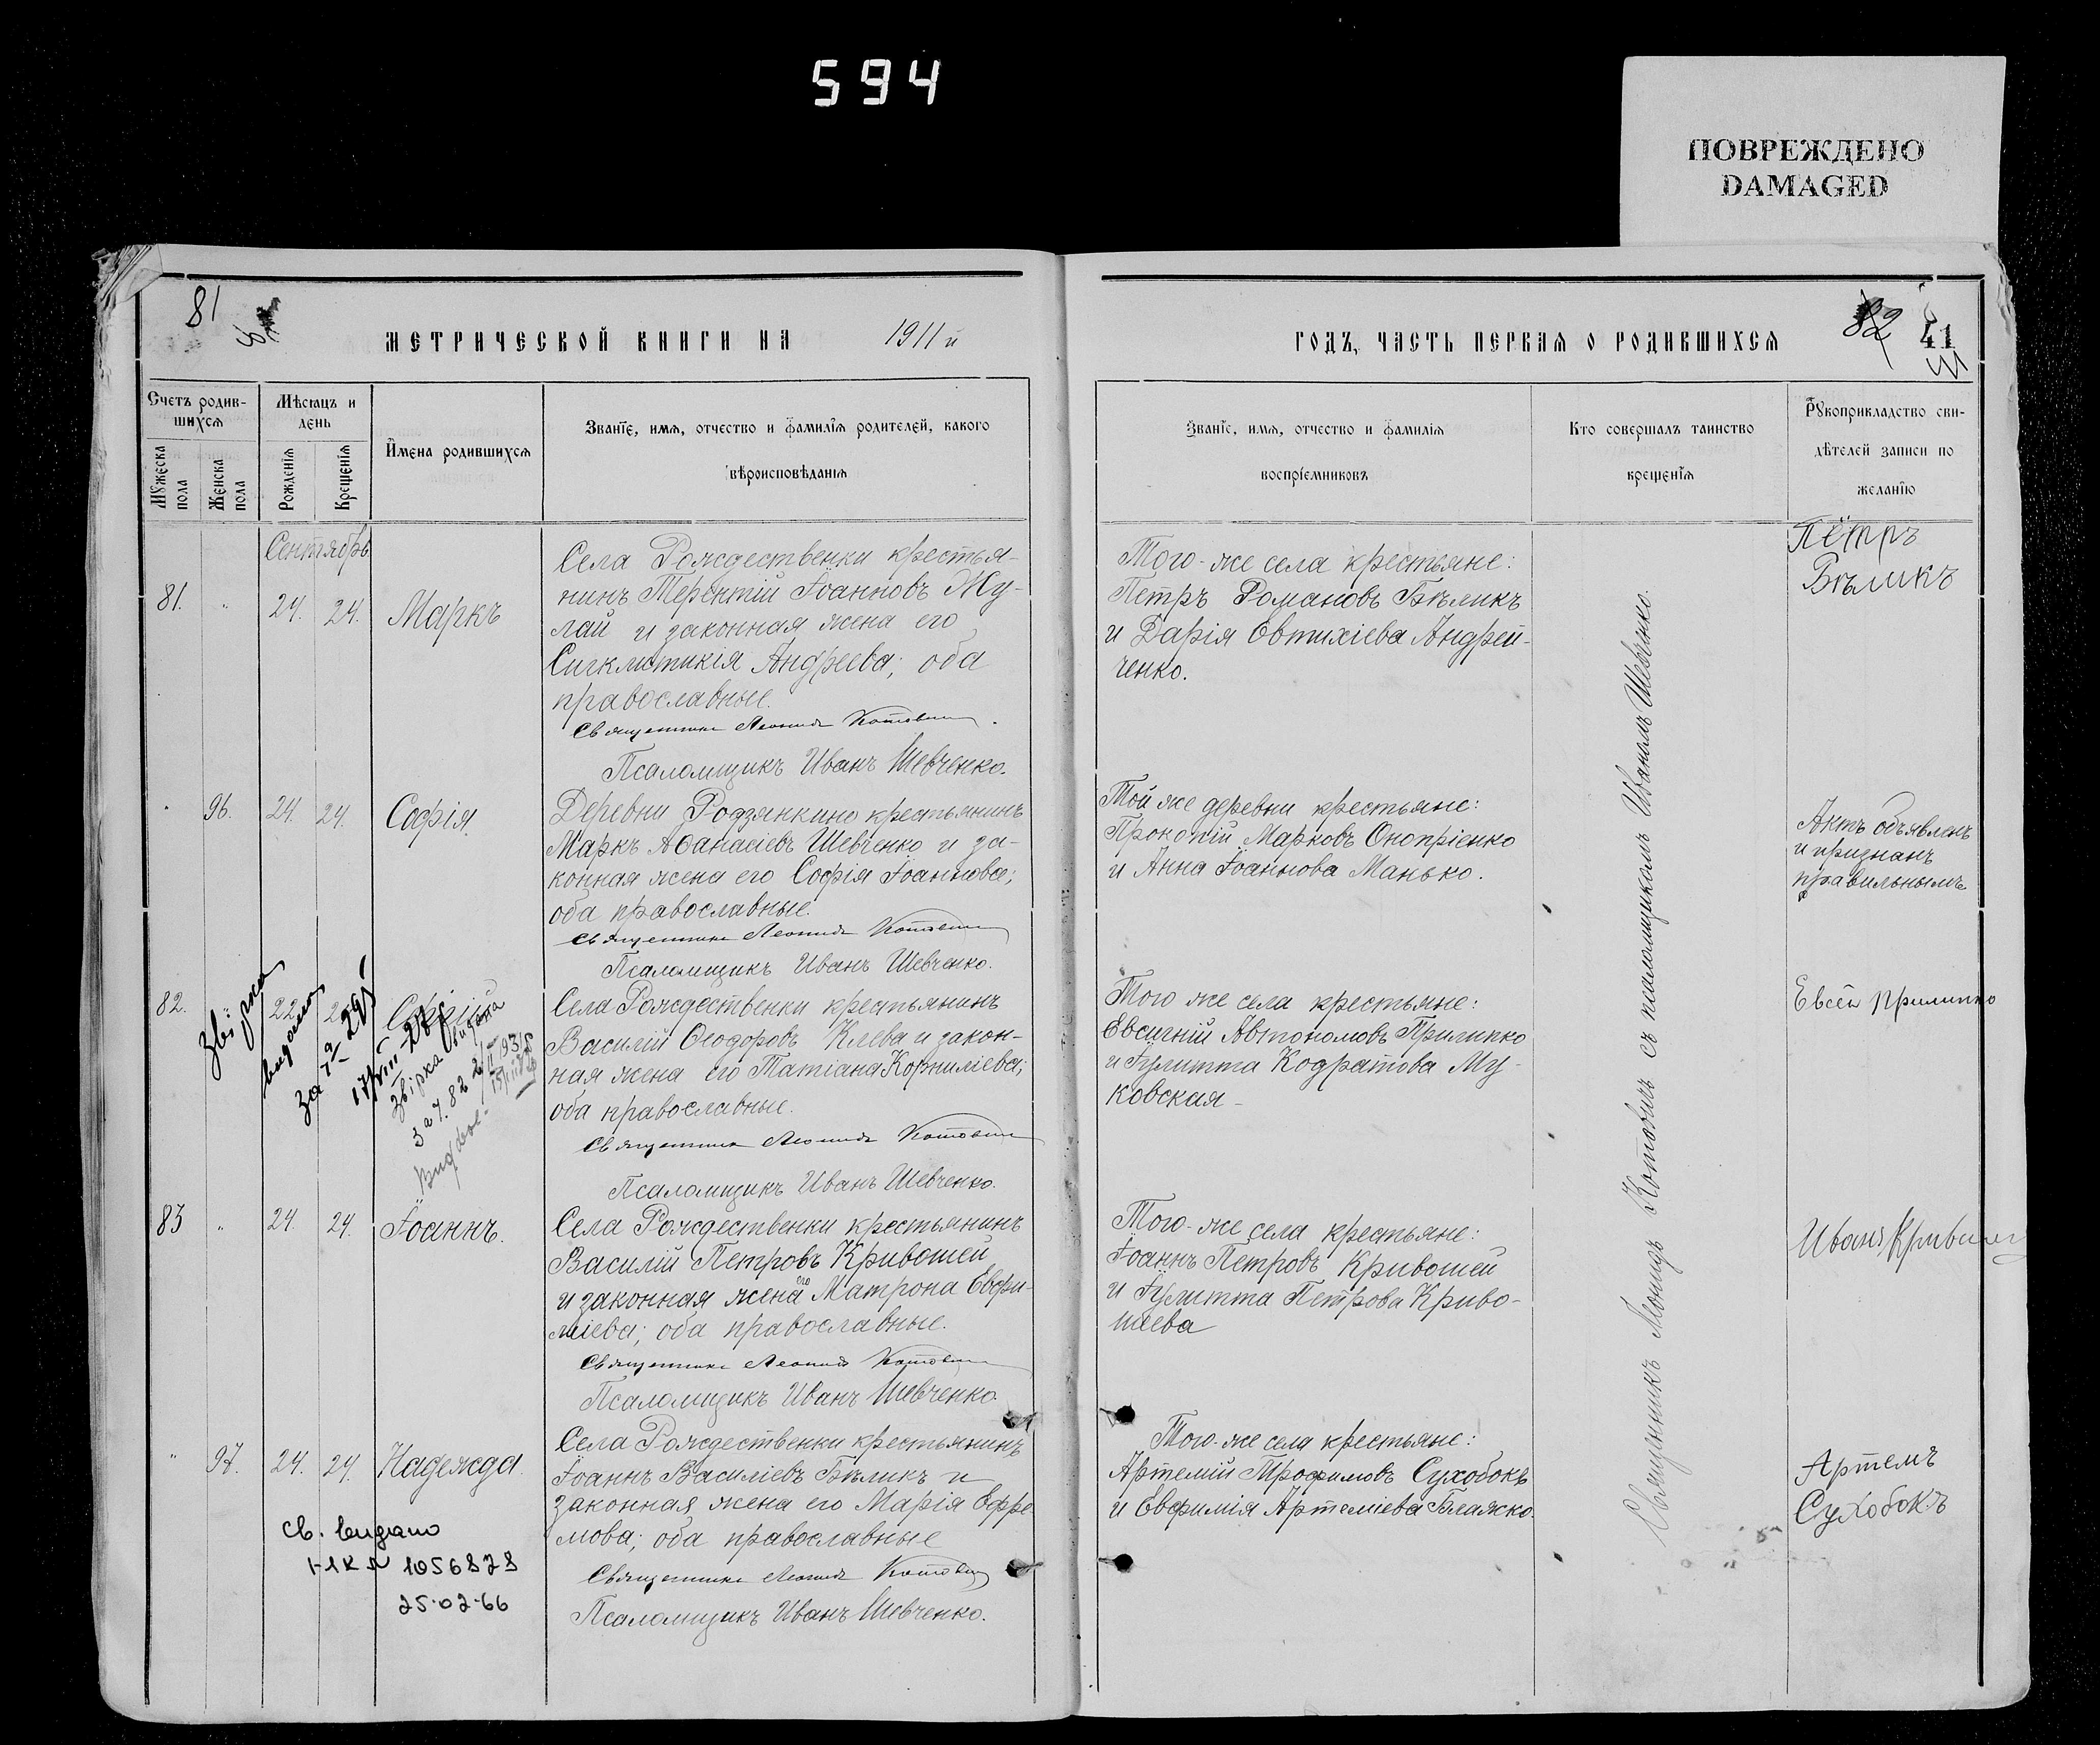 594
ПОВРЕЖДЕНО
DAMAGED
81
МЕТРИЧЕСКОЙ КНИГИ НА 1911 й
Счетъ родив-
шихся
Мѣсяцъ и
день
Мужеска
пола
Женска
пола
Рожденія
Крещенія
Имена родившихся
Званіе, имя, отчество и фамилія родителей, какого
вѣроисповѣданія
Сентябрь
81. " 24. 24. Маркъ
Села Рождественки крестья-
нинъ Терентій Іоанновъ Му-
лай и законная жена его
Сигклитикія Андреева; оба
православные.
Священникъ Леонидъ Котовичъ
Псаломщикъ Иванъ Шевченко.
" 96. 24. 24. Софія.
Деревни Родзянкино крестьянинъ
Маркъ Аѳанасіевъ Шевченко и за-
конная жена его Софія Іоаннова;
оба православные.
Священникъ Леонидъ Котовичъ
Псаломщикъ Иванъ Шевченко.
82. 22
Звірка
видана
за
Звірка видана
Села Рождественки крестьянинъ
Василій Ѳеодоровъ Клева и закон-
ная жена его Татіана Корниліева;
оба православные.
Священникъ Леонидъ Котовичъ
Псаломщикъ Иванъ Шевченко.
83 " 24. 24. Іоаннъ.
Села Рождественки крестьянинъ
Василій Петровъ Кривошей
и законная жена его Матрона Евфи-
міева; оба православные.
Священникъ Леонидъ Котовичъ
Псаломщикъ Иванъ Шевченко.
" 97. 24. 24. Надежда.
Села Рождественки крестьянинъ
Іоаннъ Василіевъ Бѣликъ и
законная жена его Марія Ефре-
мова; оба православные
Священникъ Леонидъ Котовичъ
Псаломщикъ Иванъ Шевченко.
св. видано
1056828
25.02.66
82 41
ГОДЪ, ЧАСТЬ ПЕРВАЯ О РОДИВШИХСЯ
Званіе, имя, отчество и фамилія
воспріемниковъ
Кто совершалъ таинство
крещенія
Рукоприкладство сви-
дѣтелей записи по
желанію
Того-же села крестьяне:
Петръ Романовъ Бѣликъ
и Дарія Евтихіева Андрей-
ченко.
Пётръ
Бѣликъ
Той же деревни крестьяне:
Прокопій Марковъ Онопріенко
и Анна Іоаннова Манько.
Актъ объявленъ
и признанъ
правильнымъ
Того же села крестьяне:
Евсигній Автономовъ Прилипко
и Іулитта Кодратова Му-
ковская
Евсей Прилипко
Того-же села крестьяне:
Іоаннъ Петровъ Кривошей
и Іулитта Петрова Криво-
шеева
Иванъ Кривошей
Того-же села крестьяне:
Артемій Трофимовъ Сухобокъ
и Евфимія Артеміева Бляжко.
Артемъ
Сухобокъ
Священникъ Леонидъ Котовичъ съ псаломщикомъ Иваномъ Шевченко.